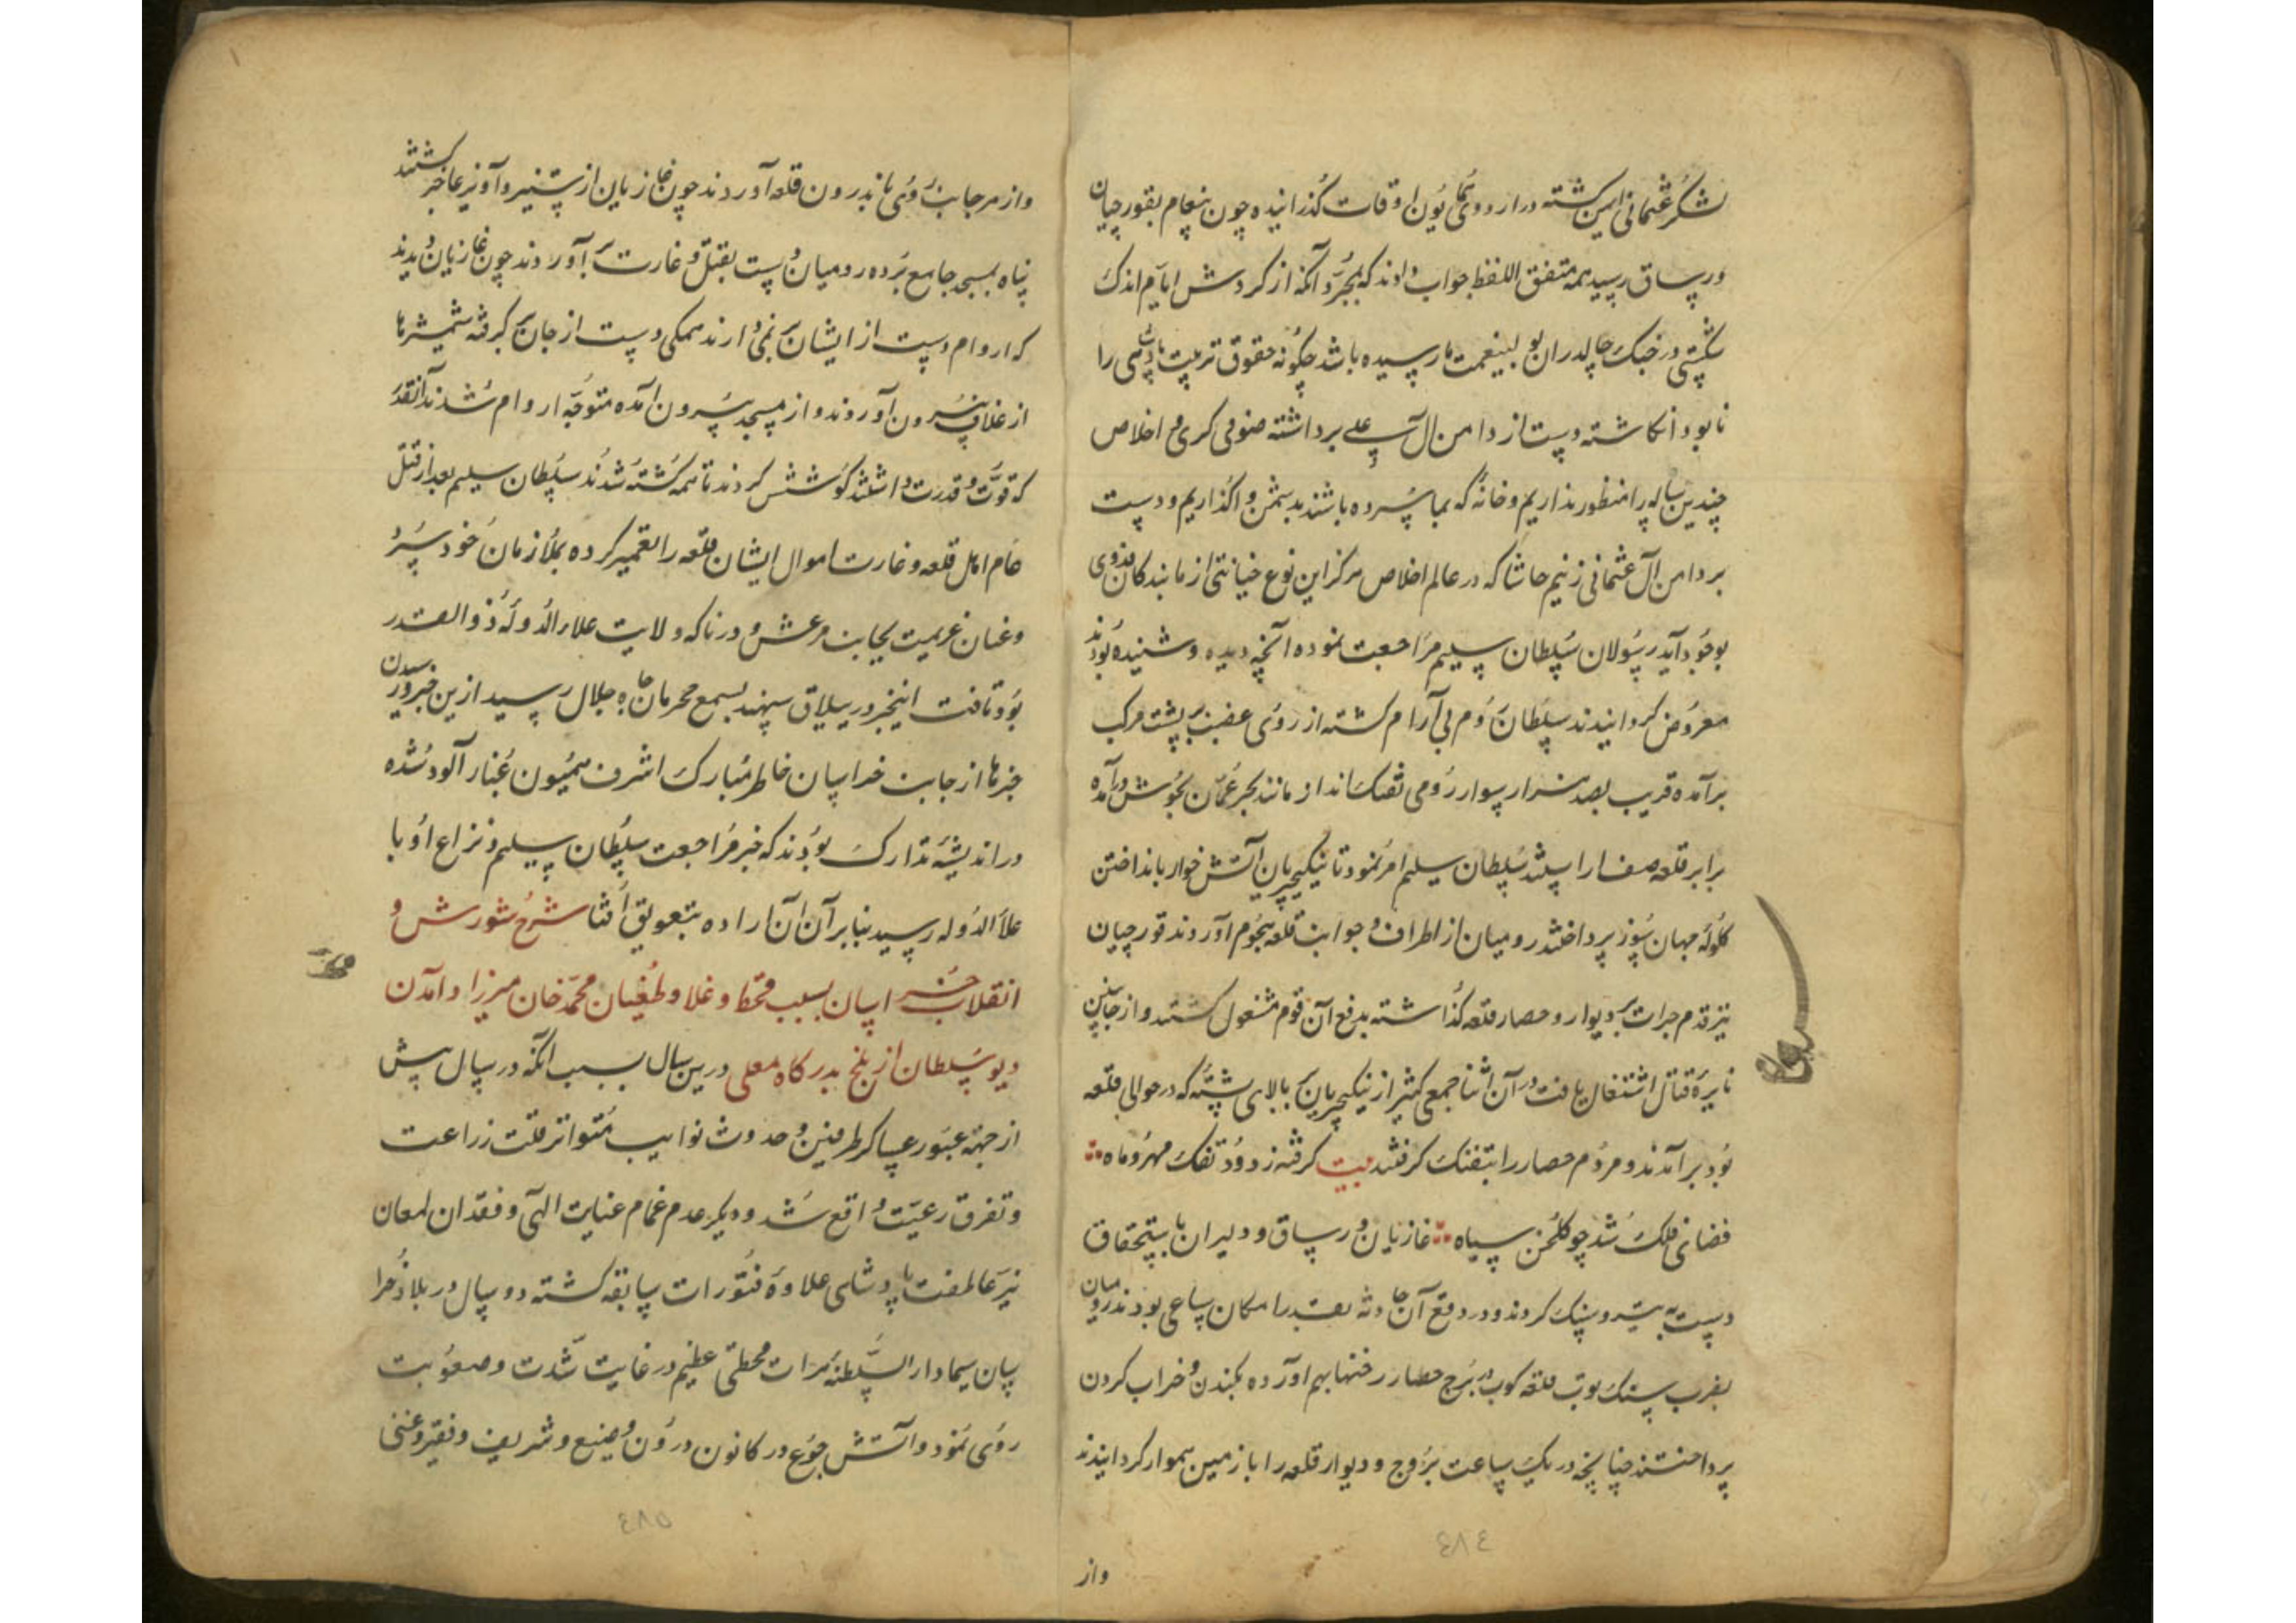 لشکر عثمانی ایمن کشته در اردوی همایون اوقات گذرانیده چون پیغام بقورچیان
ورساق رسید همه متفق اللفظ جواب دادند که بمجرد آنکه از کردش ایام اندک
شکستی در جنک چالدران بولینعمت ما رسیده باشد چگونه حقوق تربیت پادشاهی را
نابود انکاشته دست از دامن آل علی برداشته صوفی کری و اخلاص
چندین ساله را منظور نداریم و خانهٔ که بما سپرده باشند بدشمن واکذاریم و دست
بر دامن آل عثمانی زنیم حاشا که در عالم اخلاص هرکز این نوع خیانتی از ما بندکان فدوی
بوجود آید رسولان سلطان سلیم مراجعت نموده آنچه دیده و شنیده بودند
معروض کردانیدند سلطان روم بی آرام کشته از روی غضب بر پشت مرکب
برآمده قریب بصد هزار سوار رومی تفنک انداز مانند بحر عمان بجوش درآمده
برابر قلعه صف اراستند سلطان سلیم امر نمود تا نیکیچریان آتش خوار بانداختن
کلولهٔ جهان سوز پرداختند رومیان از اطراف و جوانب قلعه هجوم آوردند قورچیان
نیز قدم جرات بر دیوار و حصار قلعه گذاشته بدفع آن قوم مشغول کشتند و از جانبین
نایرهٔ قتال اشتعال یافت در آن اثنا جمعی کثیر از نیکیچریان بر بالای پشتهٔ که در حوالی قلعه
بود برآمدند و مردم حصار را بتفنک کرفتند بیت کرفته ز دود تفنک مهر و ماه
فضای فلک شد چو کلخن سیاه غازیان ورساق و دلیران با استحقاق
دست به تیر و سنک کردند و در دفع آن حادثه بقدر امکان ساعی بودند رومیان
بضرب سنک توپ قلعه کوب در برج حصار رخنها بهم آورده بکندن و خراب کردن
پرداختند چنانچه در یک ساعت بروج و دیوار قلعه را با زمین هموار کردانیدند
٤٨٤
واز
واز هر جانب روی باندرون قلعه آوردند چون غازیان از ستیز و آویز عاجز کشتند
پناه بمسجد جامع برده رومیان دست بقتل و غارت برآوردند چون غازیان دیدند
که اروام دست از ایشان بر نمی دارند همکی دست از جان بر کرفته شمشیرها
از غلاف بیرون آوردند و از مسجد بیرون آمده متوجه اروام شدند آنقدر
که قوت و قدرت داشتند کوشش کردند تا همه کشته شدند سلطان سلیم بعد از قتل
عام اهل قلعه و غارت اموال ایشان قلعه را تعمیر کرده بملازمان خود سپرد
و عنان عزیمت بجانب مرعش و درنا که ولایت علاء الدولهٔ ذوالقدر
بود تافت اینخبر در ییلاق سهند بسمع محرمان جاه و جلال رسید از ین خبر و رسیدن
خبرها از جانب خراسان خاطر مبارک اشرف همیون غبار آلود شده
در اندیشهٔ تدارک بودند که خبر مراجعت سلطان سلیم و نزاع او با
علا الدوله رسید بنابر آن آن اراده بتعویق افتاد شرح شورش و
انقلاب خراسان بسبب قحط و غلا و طغیان محمد خان میرزا و آمدن
دیو سلطان از بلخ بدرکاه معلی درین سال بسبب آنکه در سال پیش
از جهة عبور عساکر طرفین و حدوث نوایب متواتر قلت زراعت
و تفرق رعیت واقع شد و دیکر عدم غمام عنایت الهی و فقدان لمعان
نیر عاطفت پادشاهی علاوهٔ فتورات سابقه کشته دو سال در بلاد خرا
سان سیما دار السلطنهٔ هرات قحطی عظیم در غایت شدت و صعوبت
روی نمود و آتش جوع در کانون درون وضیع و شریف و فقیر و غنی
٤٨٥